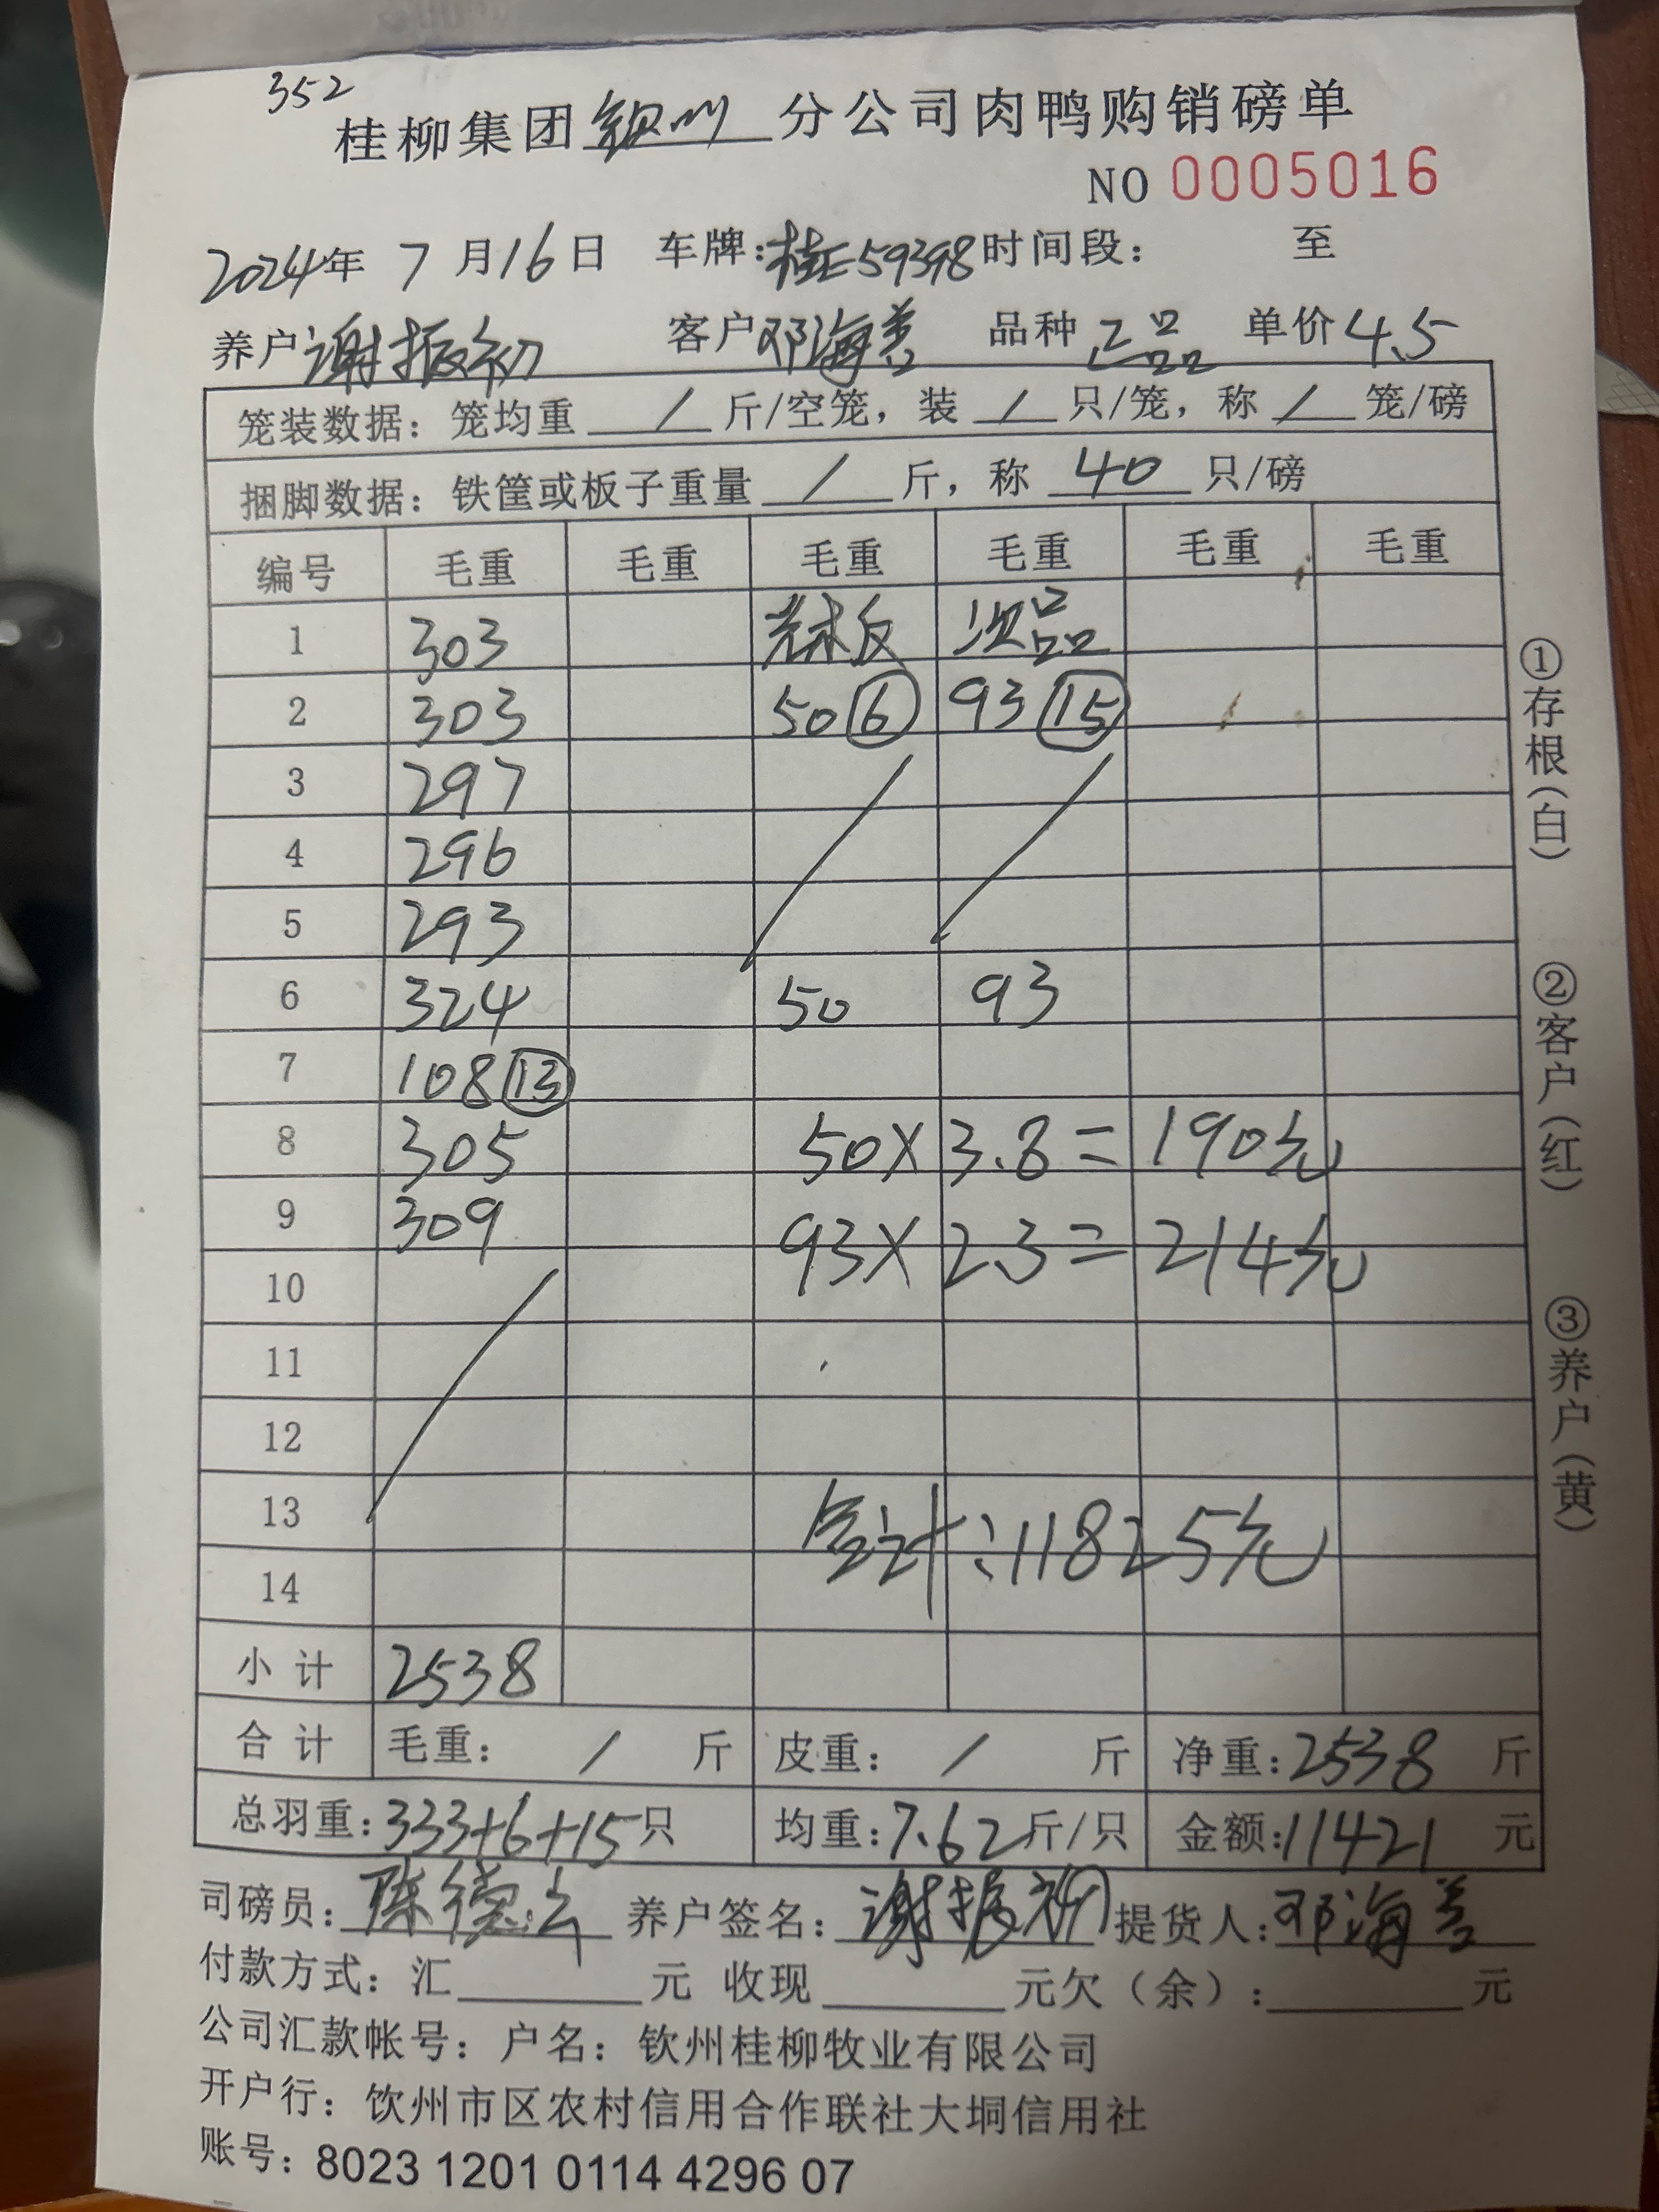 352
桂柳集团钦州分公司肉鸭购销磅单
NO 0005016
2024年 7月16日 车牌:桂E59398 时间段: 至
养户 谢振初 客户 邓海善 品种 正品 单价 4.5
笼装数据: 笼均重 / 斤/空笼, 装 / 只/笼, 称 / 笼/磅
捆脚数据: 铁筐或板子重量 / 斤, 称 40 只/磅
编号 毛重 毛重 毛重 毛重 毛重 毛重
1 303 次品
2 303 50 ⑥ 93 ⑮
3 297
4 296
5 293
6 324 50 93
7 108 ⑬
8 305 50×3.8=190元
9 309 93×2.3=214元
10
11
12
13 合计:11825元
14
小计 2538
合计 毛重: / 斤 皮重: / 斤 净重:2538 斤
总羽重:333+6+15只 均重:7.62斤/只 金额:11421 元
司磅员:陈德 养户签名:谢振初 提货人:邓海善
付款方式: 汇 元 收现 元欠(余): 元
公司汇款帐号: 户名: 钦州桂柳牧业有限公司
开户行: 钦州市区农村信用合作联社大垌信用社
账号: 8023 1201 0114 4296 07
①存根(白)
②客户(红)
③养户(黄)